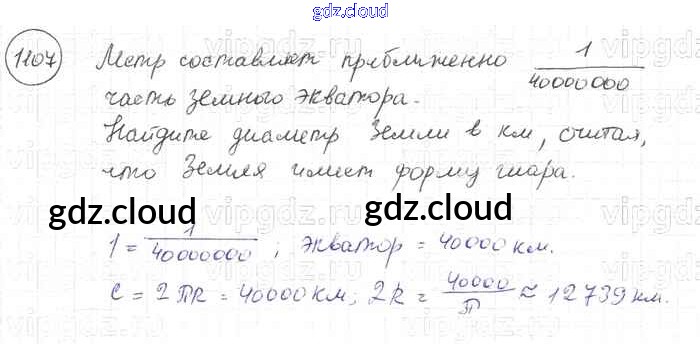 gdz.cloud
1107 Метр составляет приближенно 1/40000000
часть земного экватора.
Найдите диаметр Земли в км, считая,
что Земля имеет форму шара.
gdz.cloud gdz.cloud
1 = 1/40000000 ; экватор = 40000 км.
C = 2πR = 40000 км; 2R = 40000/π ≈ 12739 км.